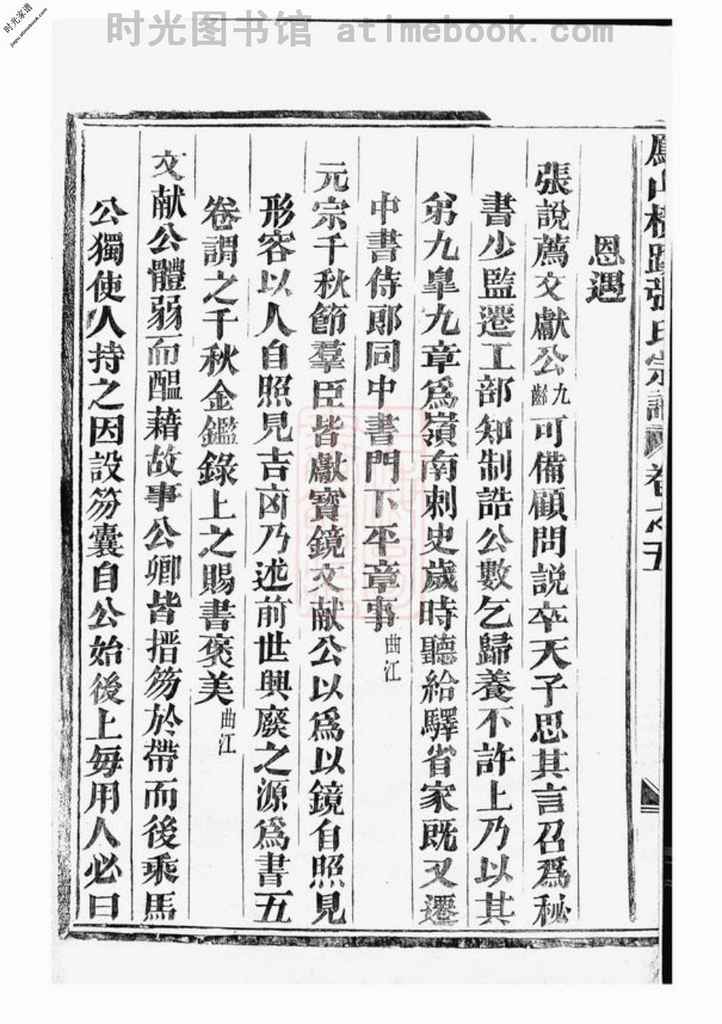 时光图书馆 atimebook.com
时光家谱
jiapu.atimebook.com
張氏宗譜 卷之五
恩遇
張說薦文獻公九齡可備顧問說卒天子思其言召爲秘
書少監遷工部知制誥公數乞歸養不許上乃以其
弟九皐九章爲嶺南刺史歲時聽給驛省家既又遷
中書侍郎同中書門下平章事曲江
元宗千秋節羣臣皆獻寶鏡文献公以爲以鏡自照見
形容以人自照見吉凶乃述前世興廢之源爲書五
卷謂之千秋金鑑錄上之賜書褒美曲江
文献公體弱而醞藉故事公卿皆搢笏於帶而後乘馬
公獨使人持之因設笏囊自公始後上每用人必曰